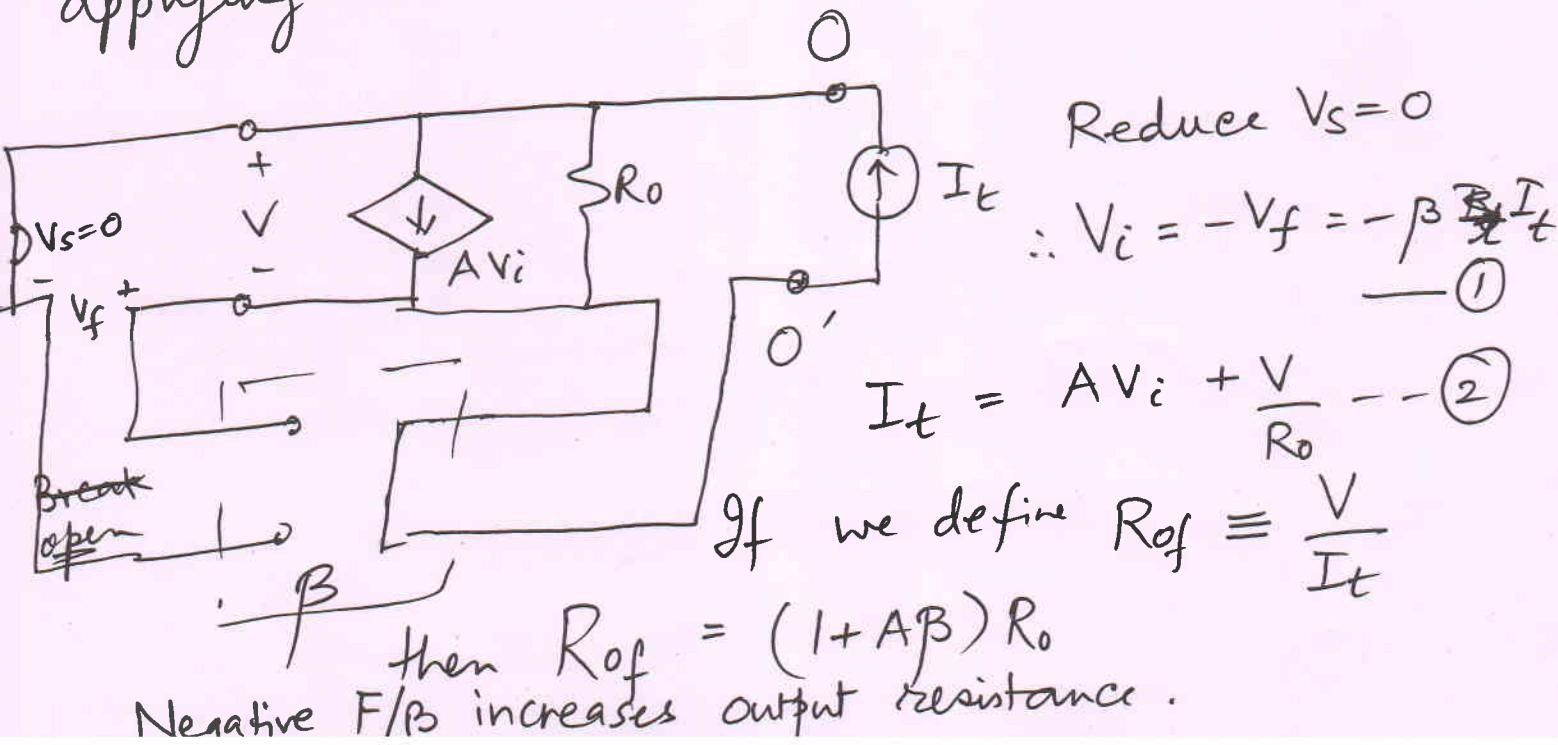 applying
O
Reduce Vs=0
Ro
It
+
V
-
Vs=0
AVi
∴ Vi = -Vf = -β It
— ①
- Vf +
O'
It = AVi + V/Ro --- ②
Break
open
If we define Rof ≡ V/It
β
then Rof = (1+Aβ) Ro
Negative F/B increases output resistance.